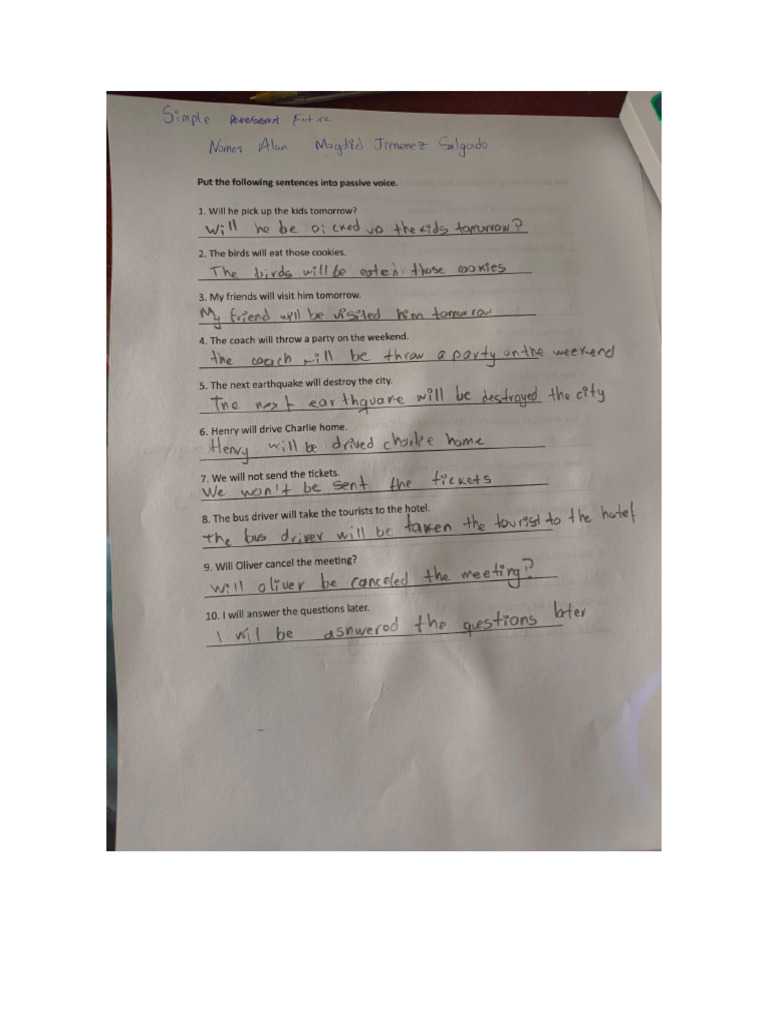 Simple Future
Name: Alan Magdid Jimenez Salgado
Put the following sentences into passive voice.
1. Will he pick up the kids tomorrow?
Will he be picked up the kids tomurrow?
2. The birds will eat those cookies.
The birds will be eaten those cookies
3. My friends will visit him tomorrow.
My friend will be visited him tomorrow
4. The coach will throw a party on the weekend.
the coach will be throw a party on the weekend
5. The next earthquake will destroy the city.
The next earthquare will be destroyed the city
6. Henry will drive Charlie home.
Henry will be drived charlie home
7. We will not send the tickets.
We won't be sent the tickets
8. The bus driver will take the tourists to the hotel.
the bus driver will be taken the tourist to the hotel
9. Will Oliver cancel the meeting?
will oliver be canceled the meeting?
10. I will answer the questions later.
I will be asnwered the questions later